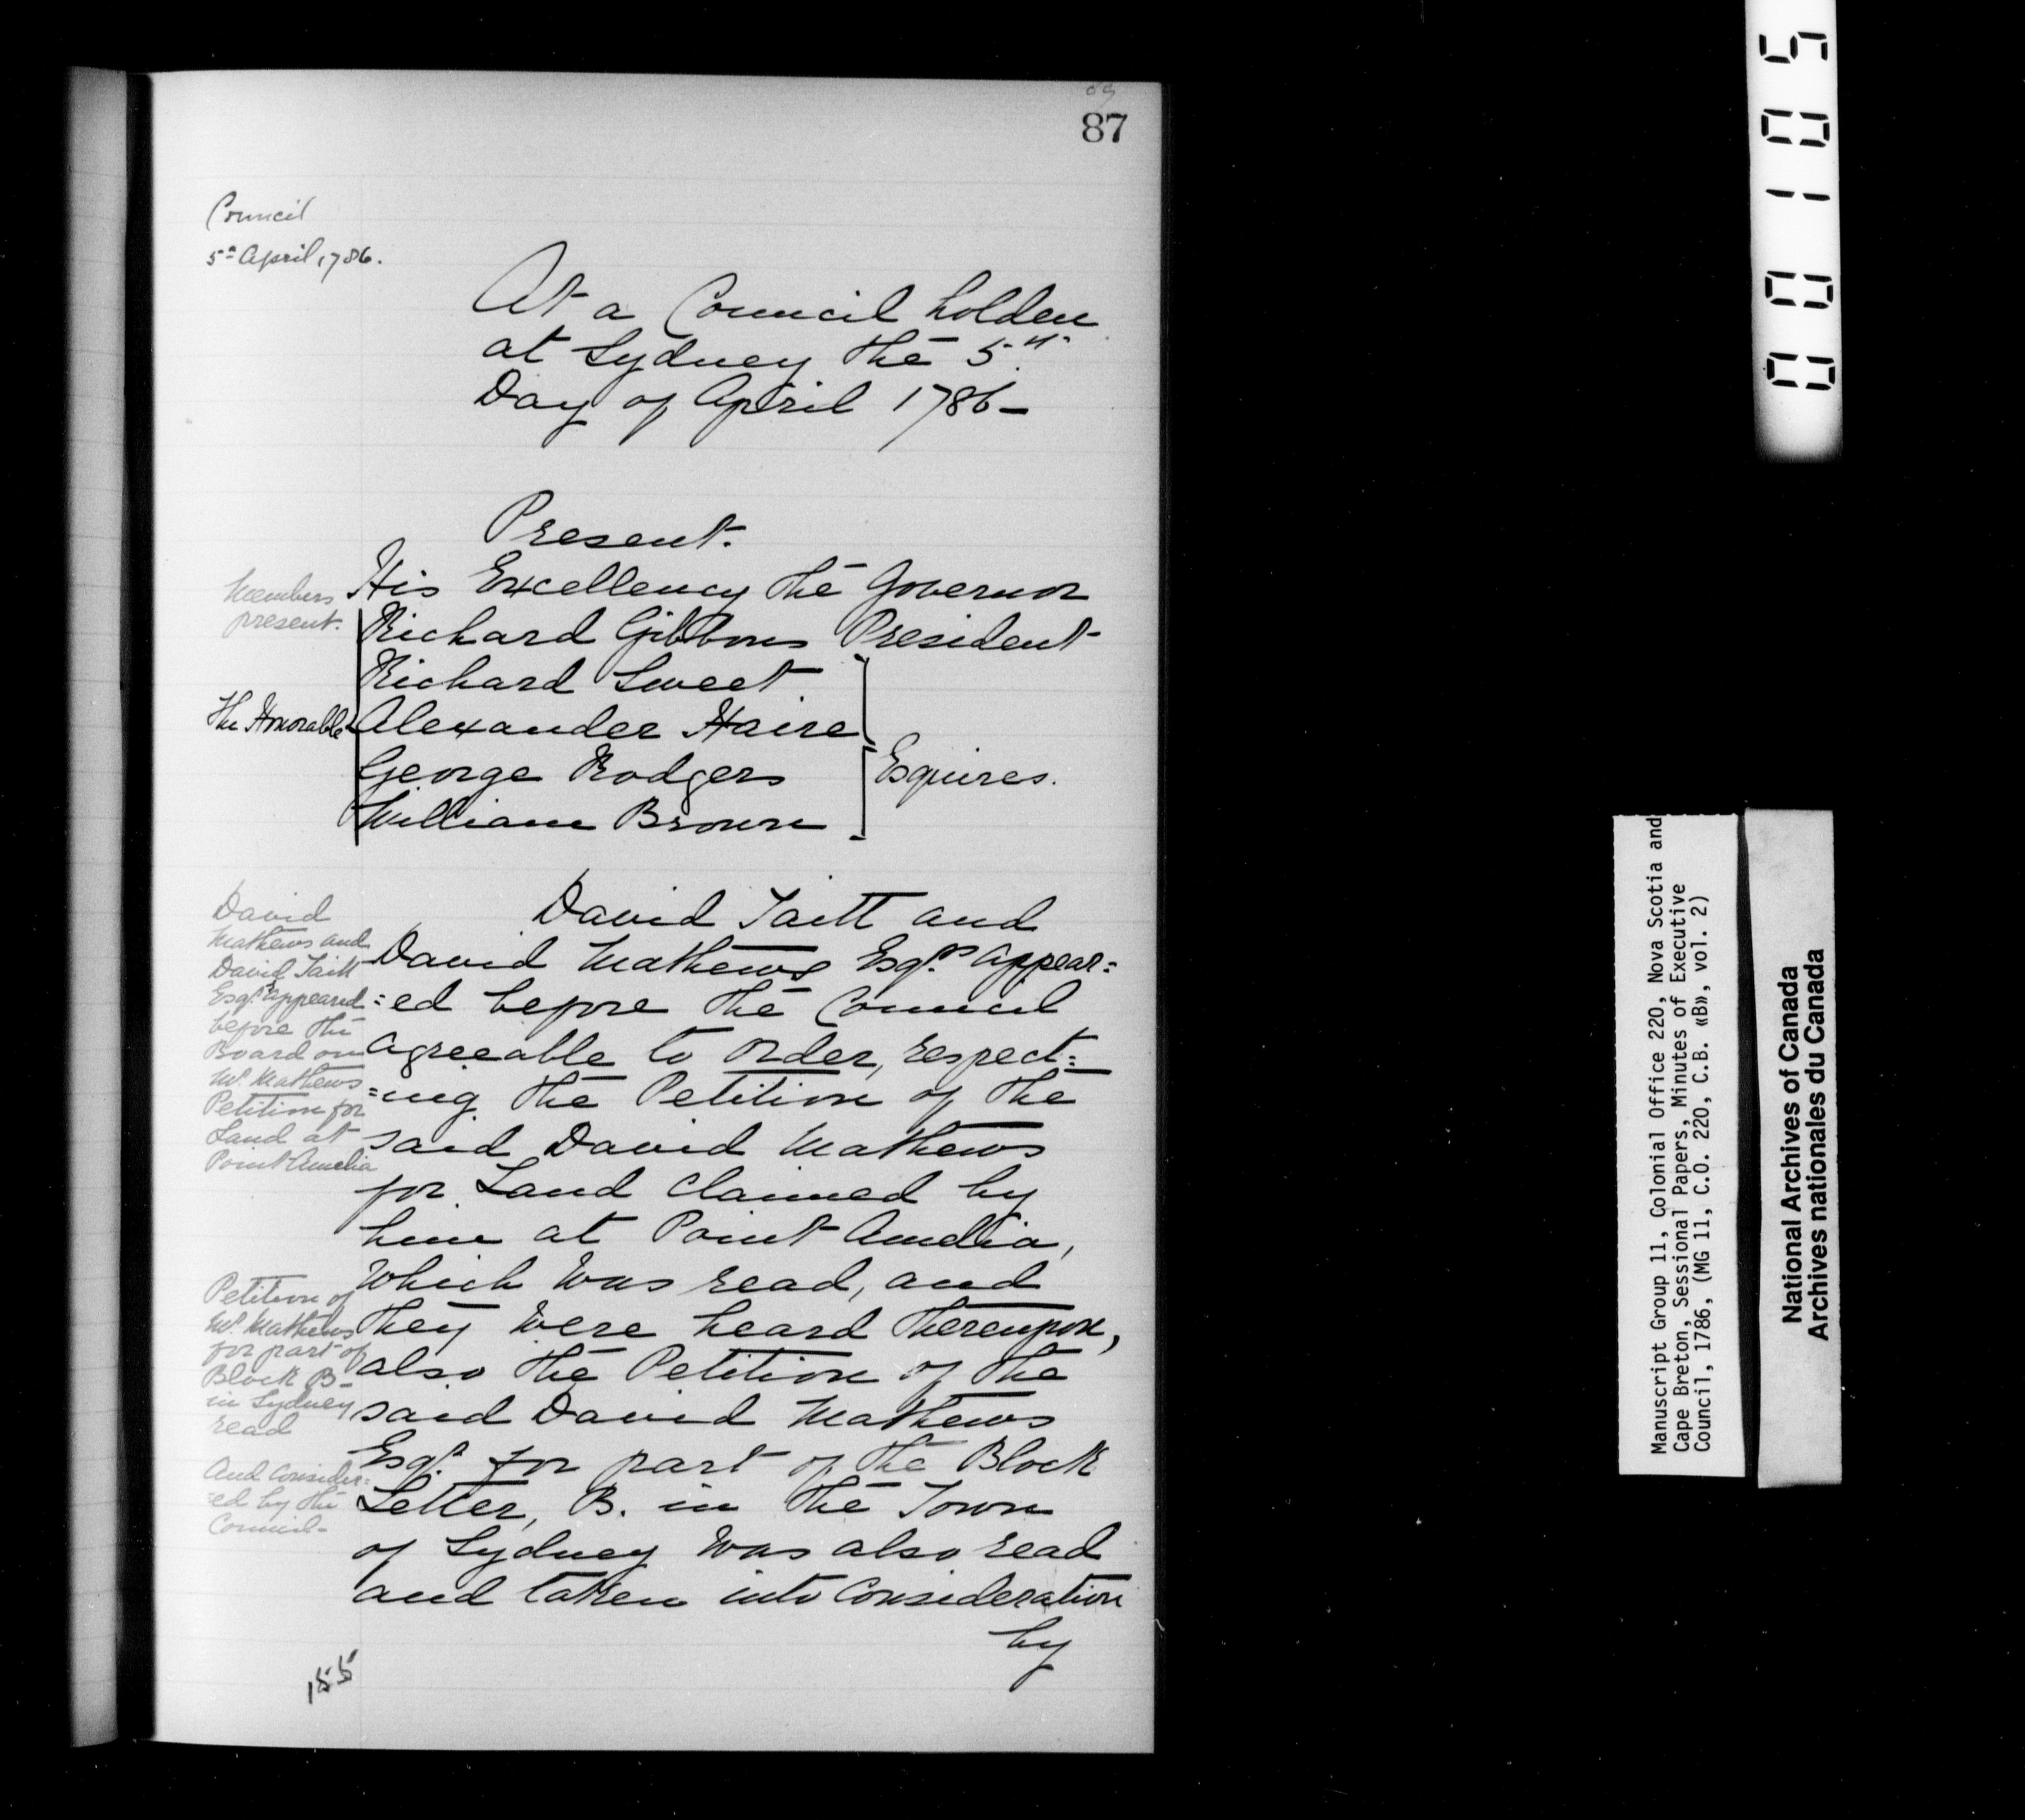 87
Council
5th April, 1786.
At a Council holden
at Sydney the 5th
Day of April 1786-
Present.
Members
present.
His Excellency the Governor
Richard Gibbons President
Richard Sweet
The Honorable
Alexander Haire
George Rodgers
Esquires.
William Brown
David
Mathews and
David Taitt
Esqrs appeared
before the
Board on
Mr. Mathews
Petition for
Land at
Point Amelia
David Taitt and
David Mathews Esqrs appear=
=ed before the Council
agreeable to order, respect=
=ing the Petition of the
said David Mathews
for Land claimed by
him at Point Amelia,
which was read, and
they were heard thereupon,
also the Petition of the
said David Mathews
Esqr for part of the Block
Letter, B. in the Town
of Sydney was also read
and taken into consideration
by
Petition of
Mr. Mathews
for part of
Block B-
in Sydney
read
And consider=
=ed by the
Council-
155
00105
Manuscript Group 11, Colonial Office 220, Nova Scotia and
Cape Breton, Sessional Papers, Minutes of Executive
Council, 1786, (MG 11, C.O. 220, C.B. «B», vol. 2)
National Archives of Canada
Archives nationales du Canada